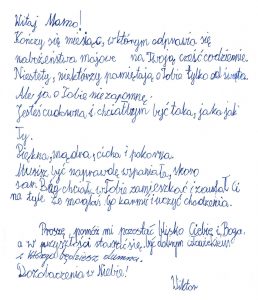 Witaj Mamo!
Kończy się miesiąc, w którym odprawia się
nabożeństwa majowe na Twoją cześć codziennie.
Niestety, niektórzy pamiętają o Tobie tylko od święta.
Ale ja o Tobie nie zapomnę.
Jesteś cudowna i chciałbym być taka, jaka jak
Ty.
Piękna, mądra, cicha i pokorna.
Musisz być naprawdę wspaniała, skoro
sam Bóg chciał w Tobie zamieszkać i zaufał Ci
na tyle że mogłaś Go karmić i uczyć chodzenia.
Proszę, pomóż mi pozostać blisko Ciebie i Boga,
a w przyszłości stać się być dobrym człowiekiem
z którego będziesz dumna.
Do zobaczenia w Niebie!
Wiktor